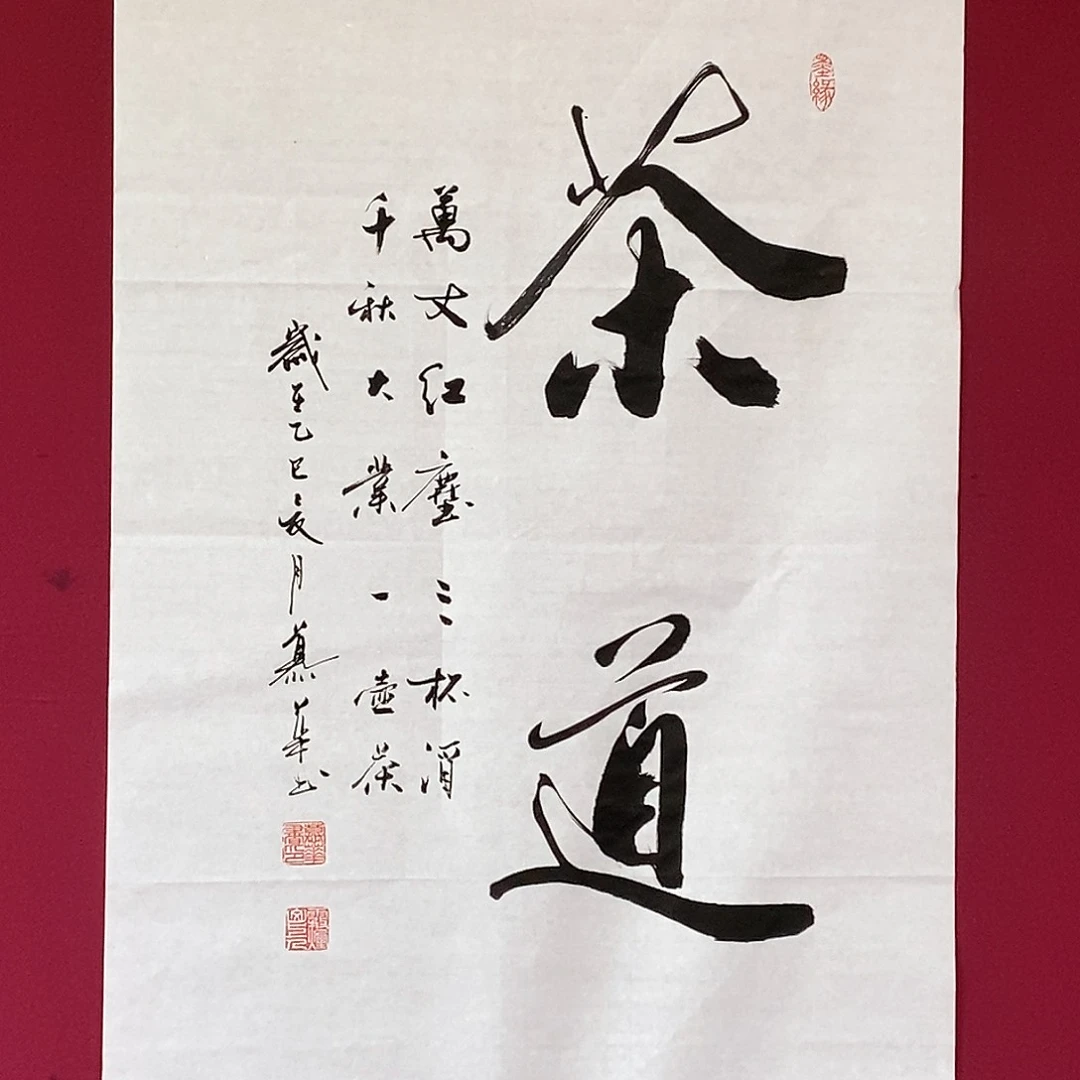 墨緣
茶道
萬丈红塵三杯酒
千秋大業一壺茶
歲在乙巳夏月慕華书